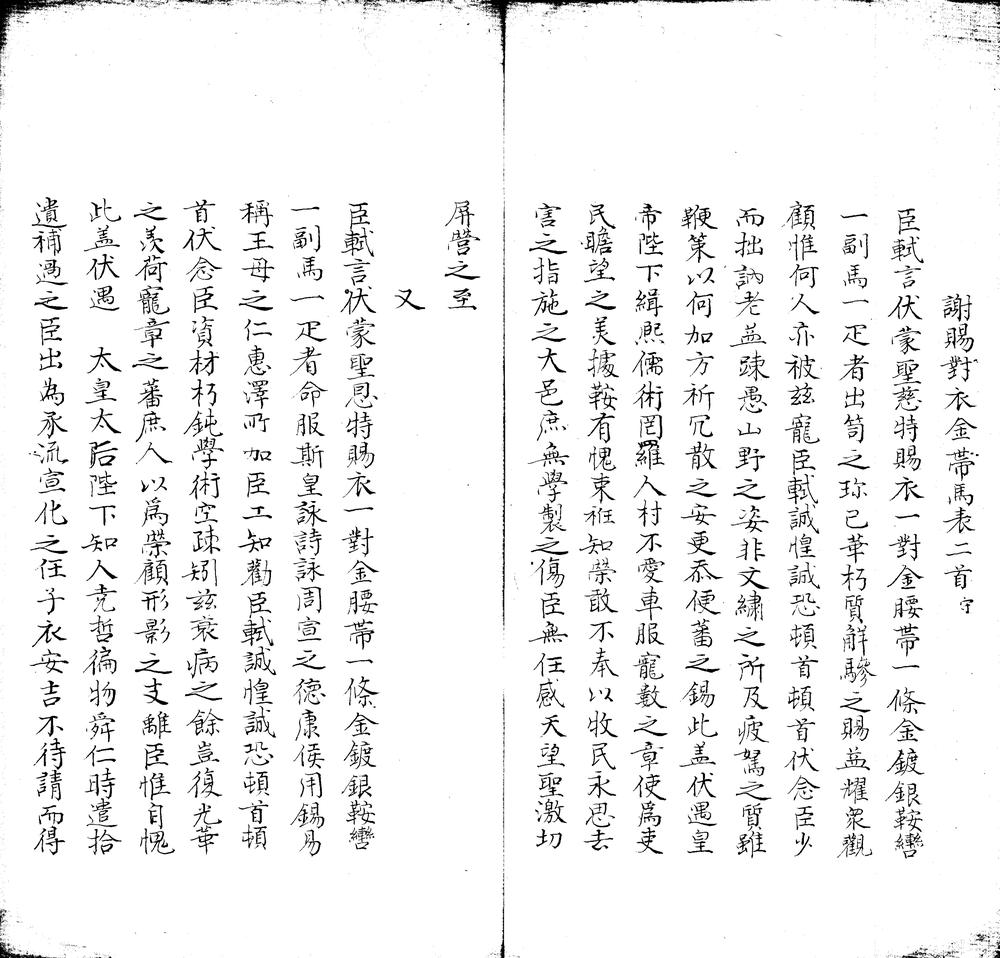 謝賜對衣金帶馬表二首守
臣軾言伏蒙聖慈特賜衣一對金腰帶一條金鍍銀鞍轡
一副馬一疋者出笥之珎已華朽質解驂之賜益耀衆觀
顧惟何人亦被玆寵臣軾誠惶誠恐頓首頓首伏念臣少
而拙訥老益踈愚山野之姿非文繡之所及疲駑之質雖
鞭策以何加方祈冗散之安更忝便蕃之錫此盖伏遇皇
帝陛下緝熈儒術罔羅人村不愛車服寵數之章使爲吏
民瞻望之美據鞍有愧束袵知榮敢不奉以牧民永思去
害之指施之大邑庶無學製之傷臣無任感天望聖激切
屏營之至
又
臣軾言伏蒙聖恩特賜衣一對金腰帶一條金鍍銀鞍轡
一副馬一疋者命服斯皇詠詩詠周宣之德康侯用錫易
稱王母之仁惠澤所加臣工知勸臣軾誠惶誠恐頓首頓
首伏念臣資材朽鈍學術空踈矧玆衰病之餘豈復光華
之羨荷寵章之蕃庶人以爲榮顧形影之支離臣惟自愧
此盖伏遇 太皇太后陛下知人堯哲徧物舜仁時遣拾
遺補過之臣出為承流宣化之任子衣安吉不待請而得